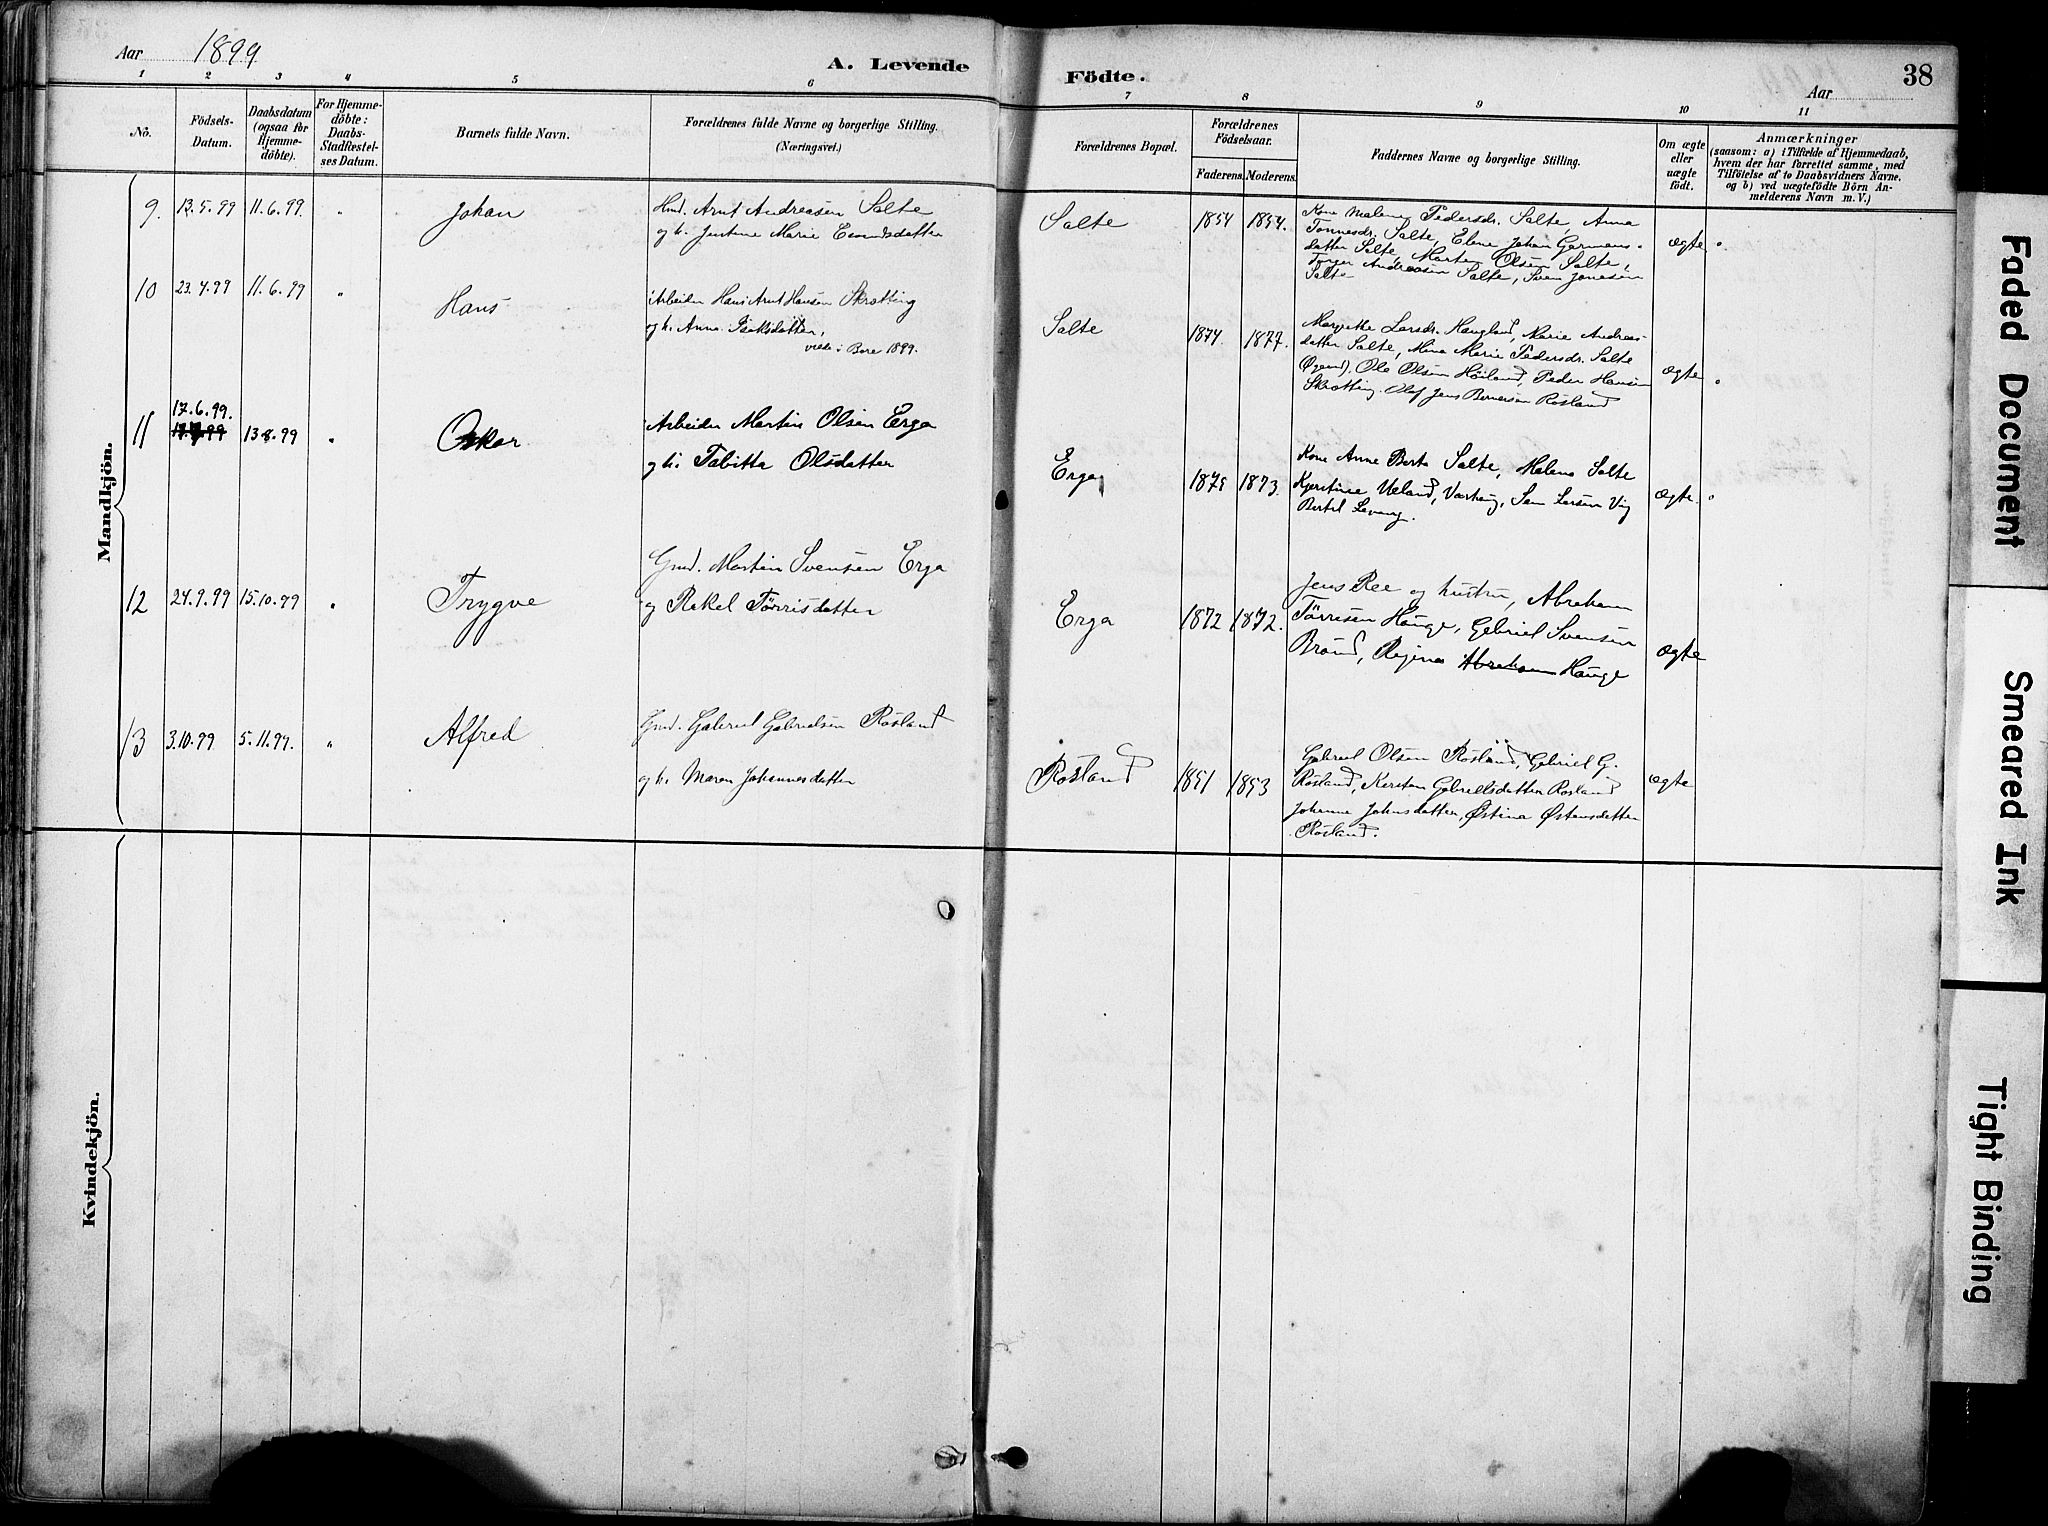 Aar 1899
A. Levende
Födte.
Aar
38
1 2 3 4 5 6 7 8 9 10 11
No.
Födsels-
Datum.
Daabsdatum
(ogsaa for
Hjemme-
döbte).
For Hjemme-
döbte:
Daabs-
Stadfæstel-
ses Datum.
Barnets fulde Navn.
Forældrenes fulde Navne og borgerlige Stilling.
(Næringsvei.)
Forældrenes Bopæl.
Forældrenes
Födselsaar.
Faderens. Moderens.
Faddernes Navne og borgerlige Stilling.
Om ægte
eller
uægte
födt.
Anmærkninger
(saasom: a) i Tilfælde af Hjemmedaab,
hvem der har forrettet samme, med
Tilföielse af to Daabsvidners Navne,
og b) ved uægtefödte Börn An-
melderens Navn m. V.)
Mandkjön.
9. 13.5.99 11.6.99. " Johan
Arnt Andreasen Salte
og h. Justine Marie
Salte 1854 1854.
Kone Malene Pedersdr. Salte, Anna
Tønnesdr. Salte, Elene Johan Germans-
datter Salte, Morten Olsen Salte,
Torger Andreasen Salte, Sven Jonesen
Salte
ægte "
10 23.4.99 11.6.99 " Hans
Arbeider Hans Arnt Hansen Skrætting
og h. Anna Isaksdatter,
viede i Bore 1899.
Salte 1874. 1877.
Margrethe Larsdr. Haugland, Marie Andreas-
datter Salte, Mina Marie Pedersdr. Salte
Ole Olsen Høiland, Peder Hansen
Skrætting. Olaf Jens Bernersen Rosland
ægte "
17.6.99.
11 13.8.99 " Oskar
Arbeider Martin Olsen Erga
og h. Tabitta Olsdatter
Erga 1875 1873.
Kone Anne Berta Salte, Malena Salte
Kjerstine Ueland, Varhaug, Sem Larsen Vig
Bertel
ægte. "
12 24.9.99 15.10.99 " Trygve
Gmd. Martin Svensen Erga
og Rakel Tørrisdatter
Erga 1872 1872.
Jens Ree og hustru, Abraham
Tørresen Hauge, Gabriel Svensen
Brønd, Regina Abraham Hauge
ægte
13 3.10.99 5.11.99. " Alfred
Gmd. Gabriel Gabrielsen Rosland
og h. Maren Johannesdatter
Rosland 1851 1853
Gabriel Olsen Rosland, Gabriel G.
Rosland, Kersten Gabrielsdatter Rosland
Johanne Johnsdatter, Østina Østensdatter
Rosland.
ægte
Kvindekjön.
Faded Document
Smeared Ink
Tight Binding